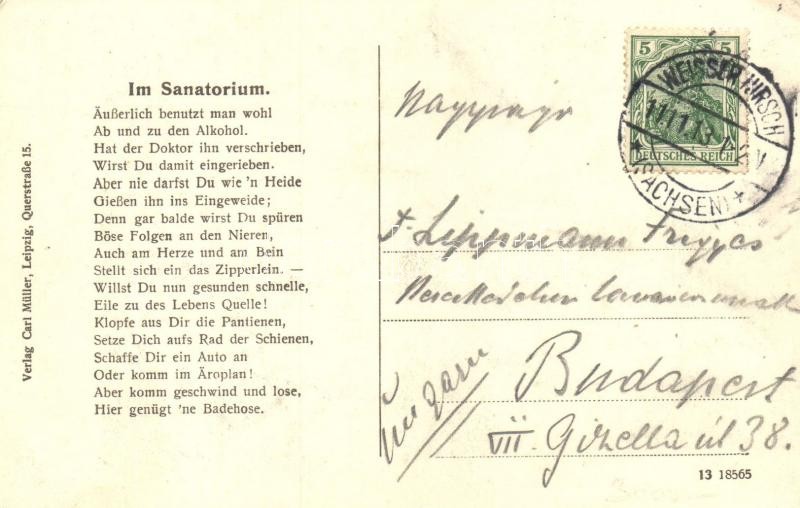 Im Sanatorium.
Äußerlich benutzt man wohl
Ab und zu den Alkohol.
Hat der Doktor ihn verschrieben,
Wirst Du damit eingerieben.
Aber nie darfst Du wie 'n Heide
Gießen ihn ins Eingeweide;
Denn gar balde wirst Du spüren
Böse Folgen an den Nieren,
Auch am Herze und am Bein
Stellt sich ein das Zipperlein. —
Willst Du nun gesunden schnelle,
Eile zu des Lebens Quelle!
Klopfe aus Dir die Pantienen,
Setze Dich aufs Rad der Schienen,
Schaffe Dir ein Auto an
Oder komm im Äroplan!
Aber komm geschwind und lose,
Hier genügt 'ne Badehose.
Verlag Carl Müller, Leipzig, Querstraße 15.
5 5
DEUTSCHES REICH
WEISSER HIRSCH
11.11.13
* (SACHSEN) *
Lippmann Frigyes
Budapest
VII. Gizella út 38.
Ungarn
13 18565